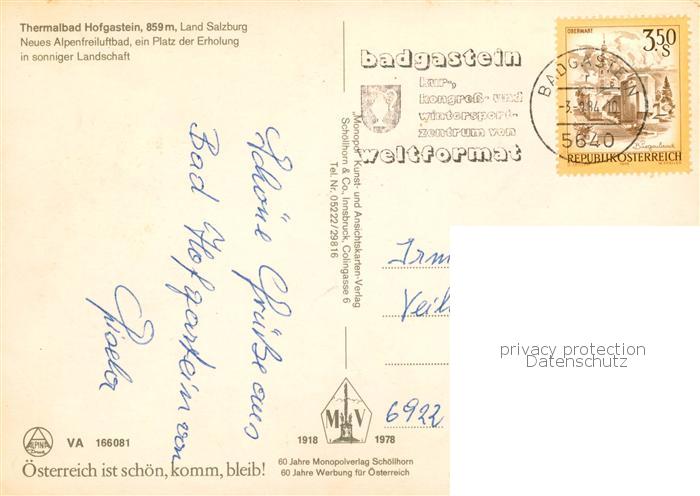 Thermalbad Hofgastein, 859 m, Land Salzburg
Neues Alpenfreiluftbad, ein Platz der Erholung
in sonniger Landschaft
badgastein
kur-,
kongreß- und
wintersport-
zentrum von
weltformat
BADGASTEIN
5640
OBERWART
3.50
S
REPUBLIK ÖSTERREICH
Schöne Grüße aus
Bad Hofgastein von
„Monopol" Kunst- und Ansichtskarten-Verlag
Schöllhorn & Co, Innsbruck, Colingasse 6
Tel. Nr. 05222/29816
Irm
Veil
6922
privacy protection
Datenschutz
ALPINA
Druck
VA 166081
Österreich ist schön, komm, bleib!
M V
1918 1978
60 Jahre Monopolverlag Schöllhorn
60 Jahre Werbung für Österreich